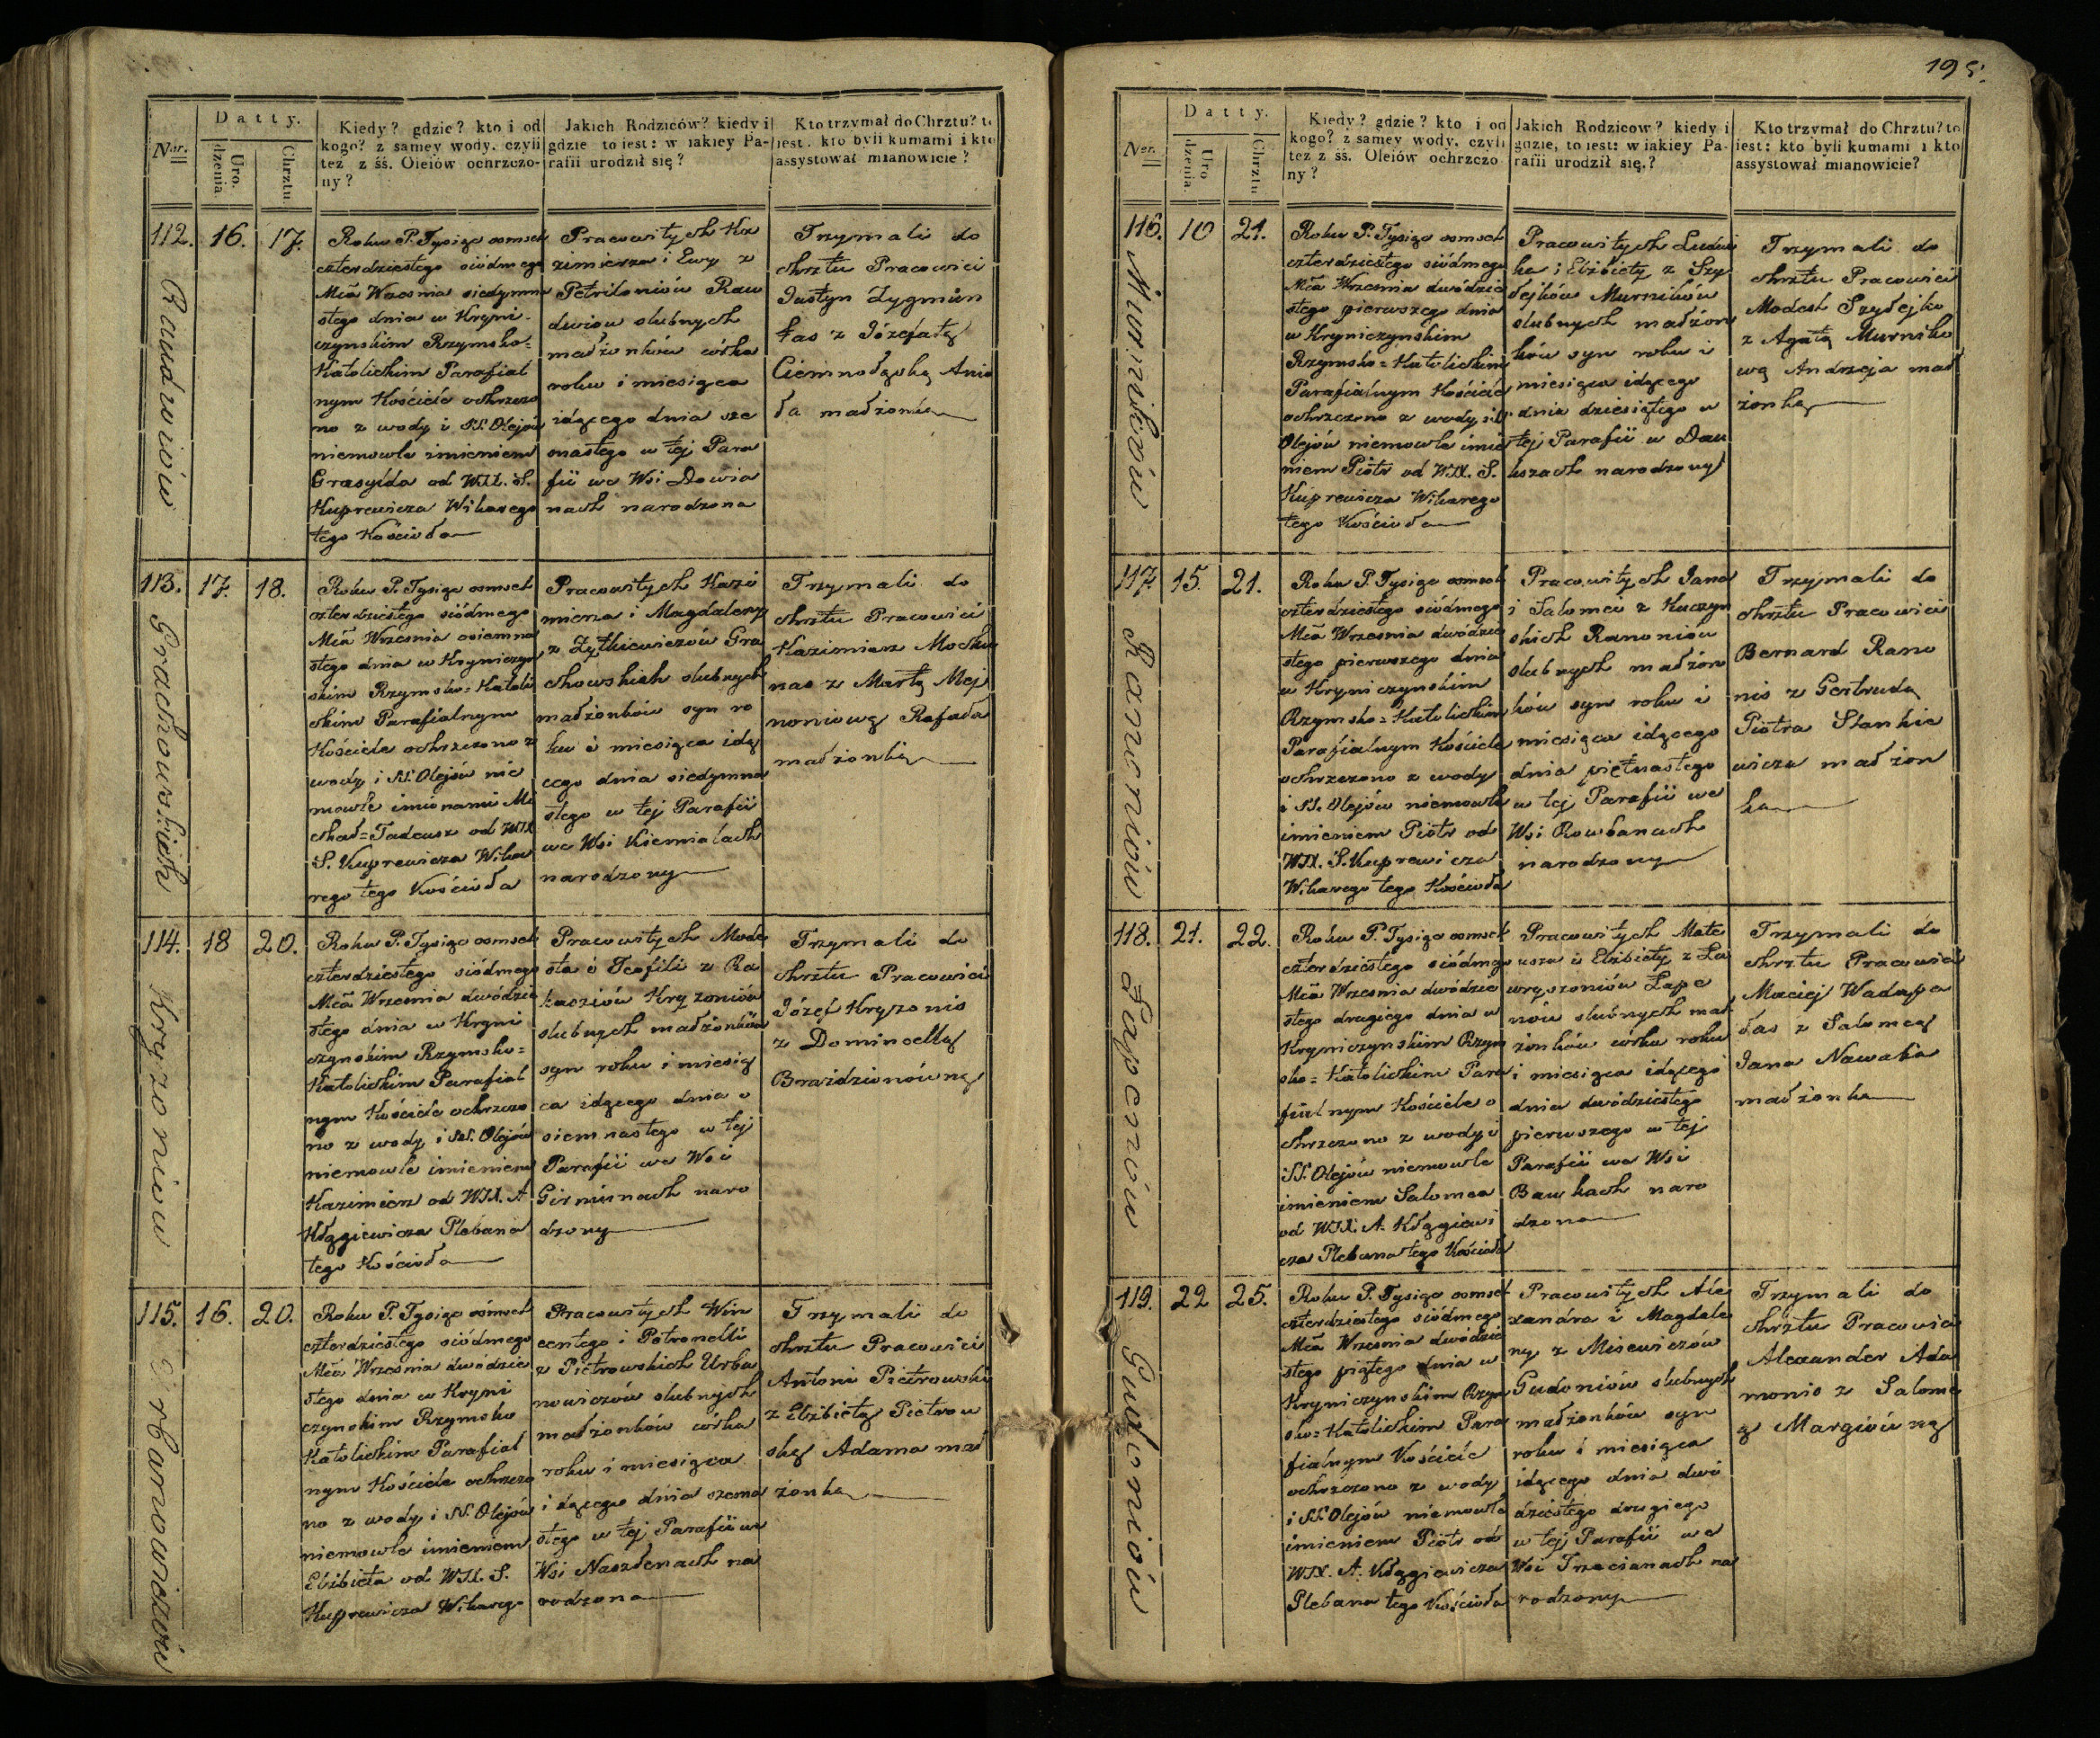 198.
Datty.
Nᵉʳ.
Uro.
dzenia.
Chrztu.
Kiedy? gdzie? kto i od
kogo? z samey wody, czyli
też z śś. Oleiów ochrzczo-
ny?
Jakich Rodziców? kiedy i
gdzie to iest: w iakiey Pa-
rafii urodził się?
Kto trzymał do Chrztu? to
iest. kto byli kumami i kto
assystował mianowicie?
112.
16.
17.
Raudwiów
Roku P. Tysiąc osmset
czterdziestego siódmego
Mca Wrzesnia siedymna
stego dnia w Kryni-
czynskim Rzymsko=
Katolickim Parafial
nym Kościele ochrzczo
no z wody i SS. Olejów
niemowle imieniem
Grasylda od WJX. S.
Kuprewicza Wikarego
tego Kościoła
Pracowitych Ka
zimierza i Ewy z
Petriloniów Rau
dwiow slubnych
małżonków córka
roku i miesiąca
idącego dnia sze
snastego w tej Para
fii we Wsi Dowia
nach narodzona
Trzymali do
chrztu Pracowici
Justyn Zygmun
tas z Józefatą
Ciemnołąską Anio
ła małżonką
113.
17.
18.
Grachowskich
Roku P. Tysiąc osmset
czterdziestego siódmego
Mca Wrzesnia osiemna
stego dnia w Kryniczyn
skim Rzymsko=Katoli
ckim Parafialnym
Kościele ochrzczono z
wody i SS. Olejów nie
mowle imionami Mi
chał=Tadeusz od WJX
S. Kuprewicza Wika
rego tego Kościoła
Pracowitych Kazi
mierza i Magdaleny
z Żytkiewiczów Gra
chowskich slubnych
małżonków syn ro
ku i miesiąca idą
cego dnia siedymna
stego w tej Parafii
we Wsi Kiermialach
narodzony
Trzymali do
chrztu Pracowici
Kazimierz Mocku
nas z Martą Mej
noniową Rafała
małżonką
114.
18
20.
Kryzoniow
Roku P. Tysiąc osmset
czterdziestego siódmego
Mca Wrzesnia dwódzie
stego dnia w Kryni
czynskim Rzymsko=
Katolickim Parafial
nym Kościele ochrzczo
no z wody i SS. Olejów
niemowle imieniem
Kazimierz od WJX. A
Kłągiewicza Plebana
tego Kościoła
Pracowitych Mode
sta i Teofili z Ra
kaoziów Kryzoniów
slubnych małżonków
syn roku i miesią
ca idącego dnia o
siemnastego w tej
Parafii we Wsi
Girniunach naro
dzony
Trzymali do
chrztu Pracowici
Józef Kryzonis
z Dominocellą
Brazdzionówną
115.
16.
20.
Urbanowiczów
Roku P. Tysiąc osmset
czterdziestego siódmego
Mca Wrzesnia dwódzie
stego dnia w Kryni
czynskim Rzymsko
Katolickim Parafial
nym Kościele ochrzczo
no z wody i SS. Olejów
niemowle imieniem
Elżbieta od WJX. S.
Kuprewicza Wikarego
Pracowitych Win
centego i Petronelli
z Pietrowskich Urba
nowiczów slubnych
małżonków córka
roku i miesiąca
idącego dnia szesna
stego w tej Parafii we
Wsi Naszlenach na
rodzona
Trzymali do
chrztu Pracowici
Antoni Pietrowski
z Elżbietą Pietrow
ską Adama mał
żonką
Datty.
Nᵉʳ.
Uro
dzenia.
Chrztu
Kiedy? gdzie? kto i od
kogo? z samey wody, czyli
też z śś. Oleiów ochrzczo
ny?
Jakich Rodzicow? kiedy i
gdzie, to iest: w iakiey Pa-
rafii urodził się.?
Kto trzymał do Chrztu? to
iest: kto byli kumami i kto
assystował mianowicie?
116.
10
21.
Murników
Roku P. Tysiąc osmset
czterdziestego siódmego
Mca Wrzesnia dwódzie
stego pierwszego dnia
w Kryniczynskim
Rzymsko=Katolickim
Parafialnym Kościele
ochrzczono z wody i SS.
Olejów niemowle imie
niem Piotr od WJX. S.
Kuprewicza Wikarego
tego Kościoła
Pracowitych Ludwi
ka i Elżbiety z Szy
dejków Murników
slubnych małżon
ków syn roku i
miesiąca idącego
dnia dziesiątego w
tej Parafii w Dau
kszach narodzony
Trzymali do
chrztu Pracowici
Modest Szydejko
z Agatą Murniko
wą Andrzeja mał
żonką
117
15.
21.
Ranoniów
Roku P. Tysiąc osmset
czterdziestego siódmego
Mca Wrzesnia dwódzie
stego pierwszego dnia
w Kryniczynskim
Rzymsko=Katolickim
Parafialnym Kościele
ochrzczono z wody
i SS. Olejów niemowle
imieniem Piotr od
WJX. S. Kuprewicza
Wikarego tego Kościoła
Pracowitych Jana
i Salomei z Kuczyn
skich Ranoniów
slubnych małżon
ków syn roku i
miesiąca idącego
dnia piętnastego
w tej Parafii we
Wsi Rowbanach
narodzony
Trzymali do
chrztu Pracowici
Bernard Rano
nis z Gertrudą
Piotra Stankie
wicza małżon
ką
118.
21.
22.
Łapenów
Roku P. Tysiąc osmset
czterdziestego siódmego
Mca Wrzesnia dwódzie
stego drugiego dnia w
Kryniczynskim Rzym
sko=Katolickim Para
fialnym Kościele o
chrzczono z wody i
SS. Olejów niemowle
imieniem Salomea
od WJX. A. Kłągiewi
cza Plebana tego Kościoła
Pracowitych Mate
usza i Elżbiety z Ła
wryszoniów Łape
nów slubnych mał
żonków córka roku
i miesiąca idącego
dnia dwódziestego
pierwszego w tej
Parafii we Wsi
Baukach naro
dzona
Trzymali do
chrztu Pracowici
Maciej Wadapa
łas z Salomeą
Jana Nawaka
małżonką
119.
22
25.
Gudoniów
Roku P. Tysiąc osmset
czterdziestego siódmego
Mca Wrzesnia dwódzie
stego piątego dnia w
Kryniczynskim Rzym
sko=Katolickim Para
fialnym Kościele
ochrzczono z wody
i SS. Olejów niemowle
imieniem Piotr od
WJX. A. Kłągiewicza
Plebana tego Kościoła
Pracowitych Ale
xandra i Magdale
ny z Misewiczów
Gudoniów slubnych
małżonków syn
roku i miesiąca
idącego dnia dwó
dziestego drugiego
w tej Parafii we
Wsi Trzecianach na
rodzony
Trzymali do
chrztu Pracowici
Alexander Ada
monis z Salome
ą Margiówną